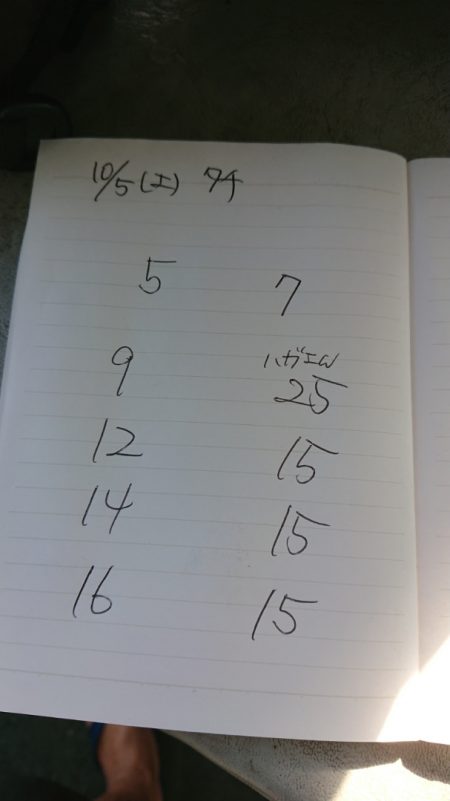 10/5(土) タチ
5 7
9 ハガエさん
25
12 15
14 15
16 15